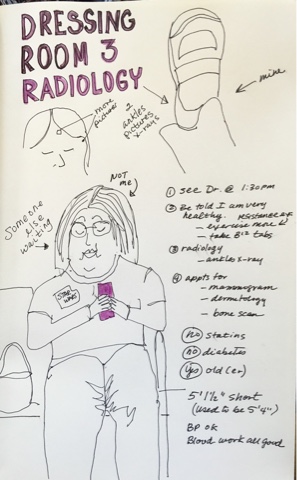 DRESSING
ROOM 3
RADIOLOGY
more
pictures
2
ankles
pictures
x-rays
mine
NOT
me
Someone
else
waiting
STAR
WARS
① see Dr. @ 1:30pm
② Be told I am very
healthy.
- exercise more &
- take B12 tabs
③ radiology
- ankles x-ray
④ appts for
- mammogram
- dermatology
- bone scan
no statins
no diabetes
yes old(er)
5' 1½" short
(used to be 5'4")
BP OK
Blood work all good